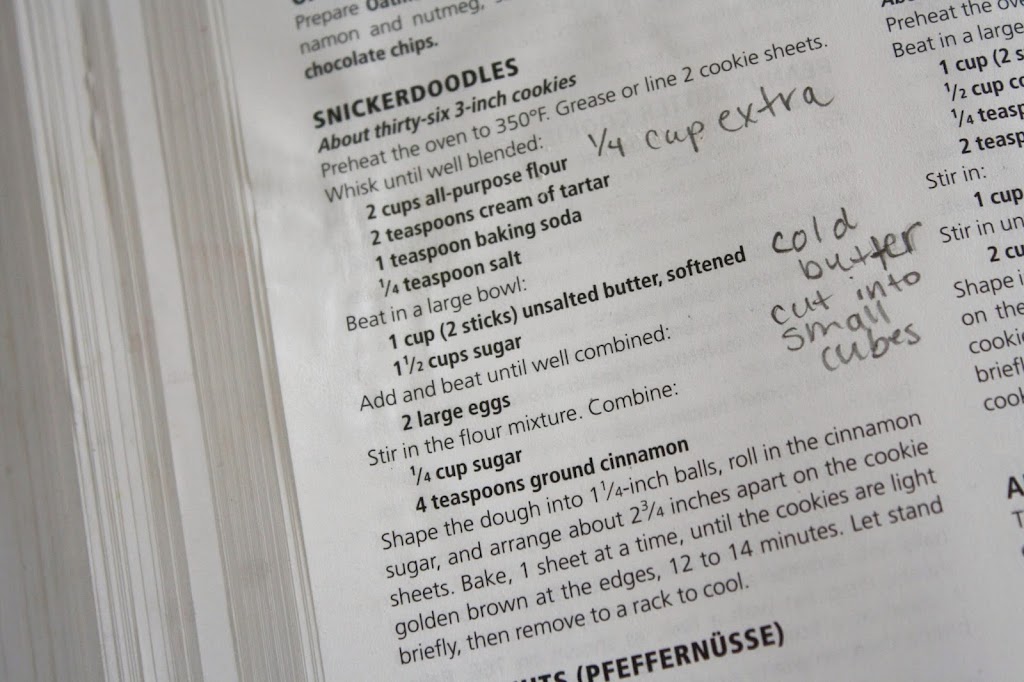 Prepare
namon and nutmeg,
chocolate chips.
SNICKERDOODLES
About thirty-six 3-inch cookies
Preheat the oven to 350°F. Grease or line 2 cookie sheets.
Whisk until well blended: 1/4 cup extra
2 cups all-purpose flour
2 teaspoons cream of tartar
1 teaspoon baking soda
1/4 teaspoon salt
Beat in a large bowl:
1 cup (2 sticks) unsalted butter, softened
cold
butter
cut into
small
cubes
1 1/2 cups sugar
Add and beat until well combined:
2 large eggs
Stir in the flour mixture. Combine:
1/4 cup sugar
4 teaspoons ground cinnamon
Shape the dough into 1 1/4-inch balls, roll in the cinnamon
sugar, and arrange about 2 3/4 inches apart on the cookie
sheets. Bake, 1 sheet at a time, until the cookies are light
golden brown at the edges, 12 to 14 minutes. Let stand
briefly, then remove to a rack to cool.
(PFEFFERNÜSSE)
Preheat the
Beat in a large
1 cup (2
1/2 cup
1/4
2
Stir in:
1 cup
Stir in
2
Shape
on the